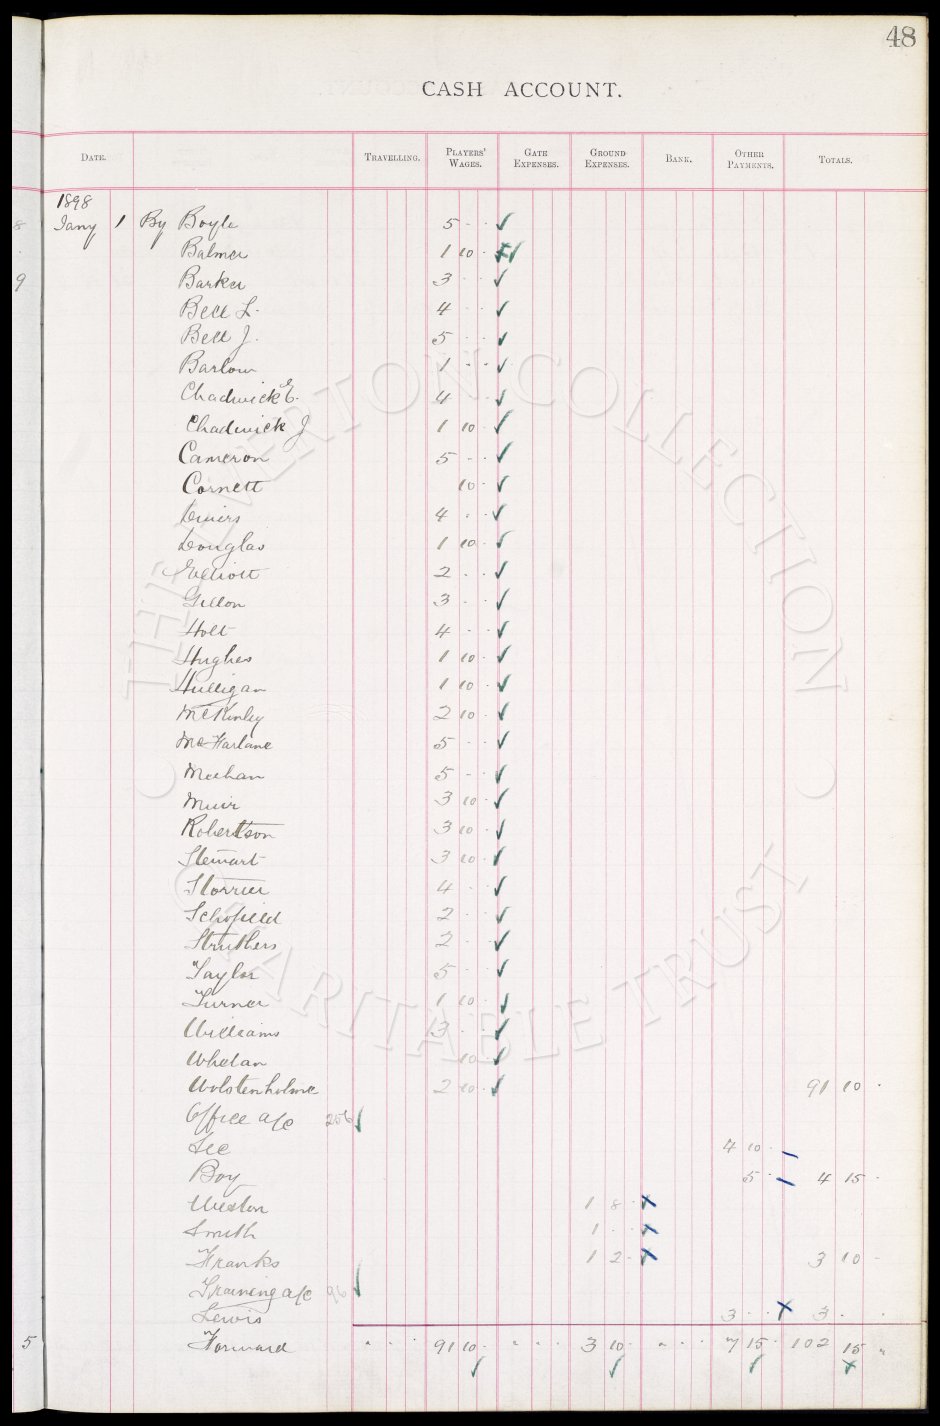 48
CASH ACCOUNT.
DATE. TRAVELLING. PLAYERS' WAGES. GATE EXPENSES. GROUND EXPENSES. BANK. OTHER PAYMENTS. TOTALS.
1898
8 Jany 1 By Boyle 5 - -
Balmer 1 10 -
9 Barker 3 - -
Bell L. 4 - -
Bell J. 5 - -
Barlow 1 - -
Chadwick E. 4 - -
Chadwick J 1 10 -
Cameron 5 - -
Cornett 10 -
4 - -
Douglas 1 10 -
Elliott 2 - -
Gillon 3 - -
Holt 4 - -
Hughes 1 10 -
Hulligan 1 10 -
McKinley 2 10 -
McFarlane 5 - -
Meehan 5 - -
Muir 3 10 -
Robertson 3 10 -
Stewart 3 10 -
Storrier 4 - -
Schofield 2 - -
Struthers 2 - -
Taylor 5 - -
Turner 1 10 -
Williams 3 - -
Whelan 10 -
Wolstenholme 2 10 - 91 10 -
Office a/c 256
Lee 4 10 -
Boy 5 - 4 15 -
Weston 1 8 -
Smith 1 - -
Franks 1 2 - 3 10 -
Training a/c 96
Lewis 3 - - 3 - -
5 Forward " - - 91 10 - " - - 3 10 - " - - 7 15 - 102 15 "
THE EVERTON COLLECTION
CHARITABLE TRUST